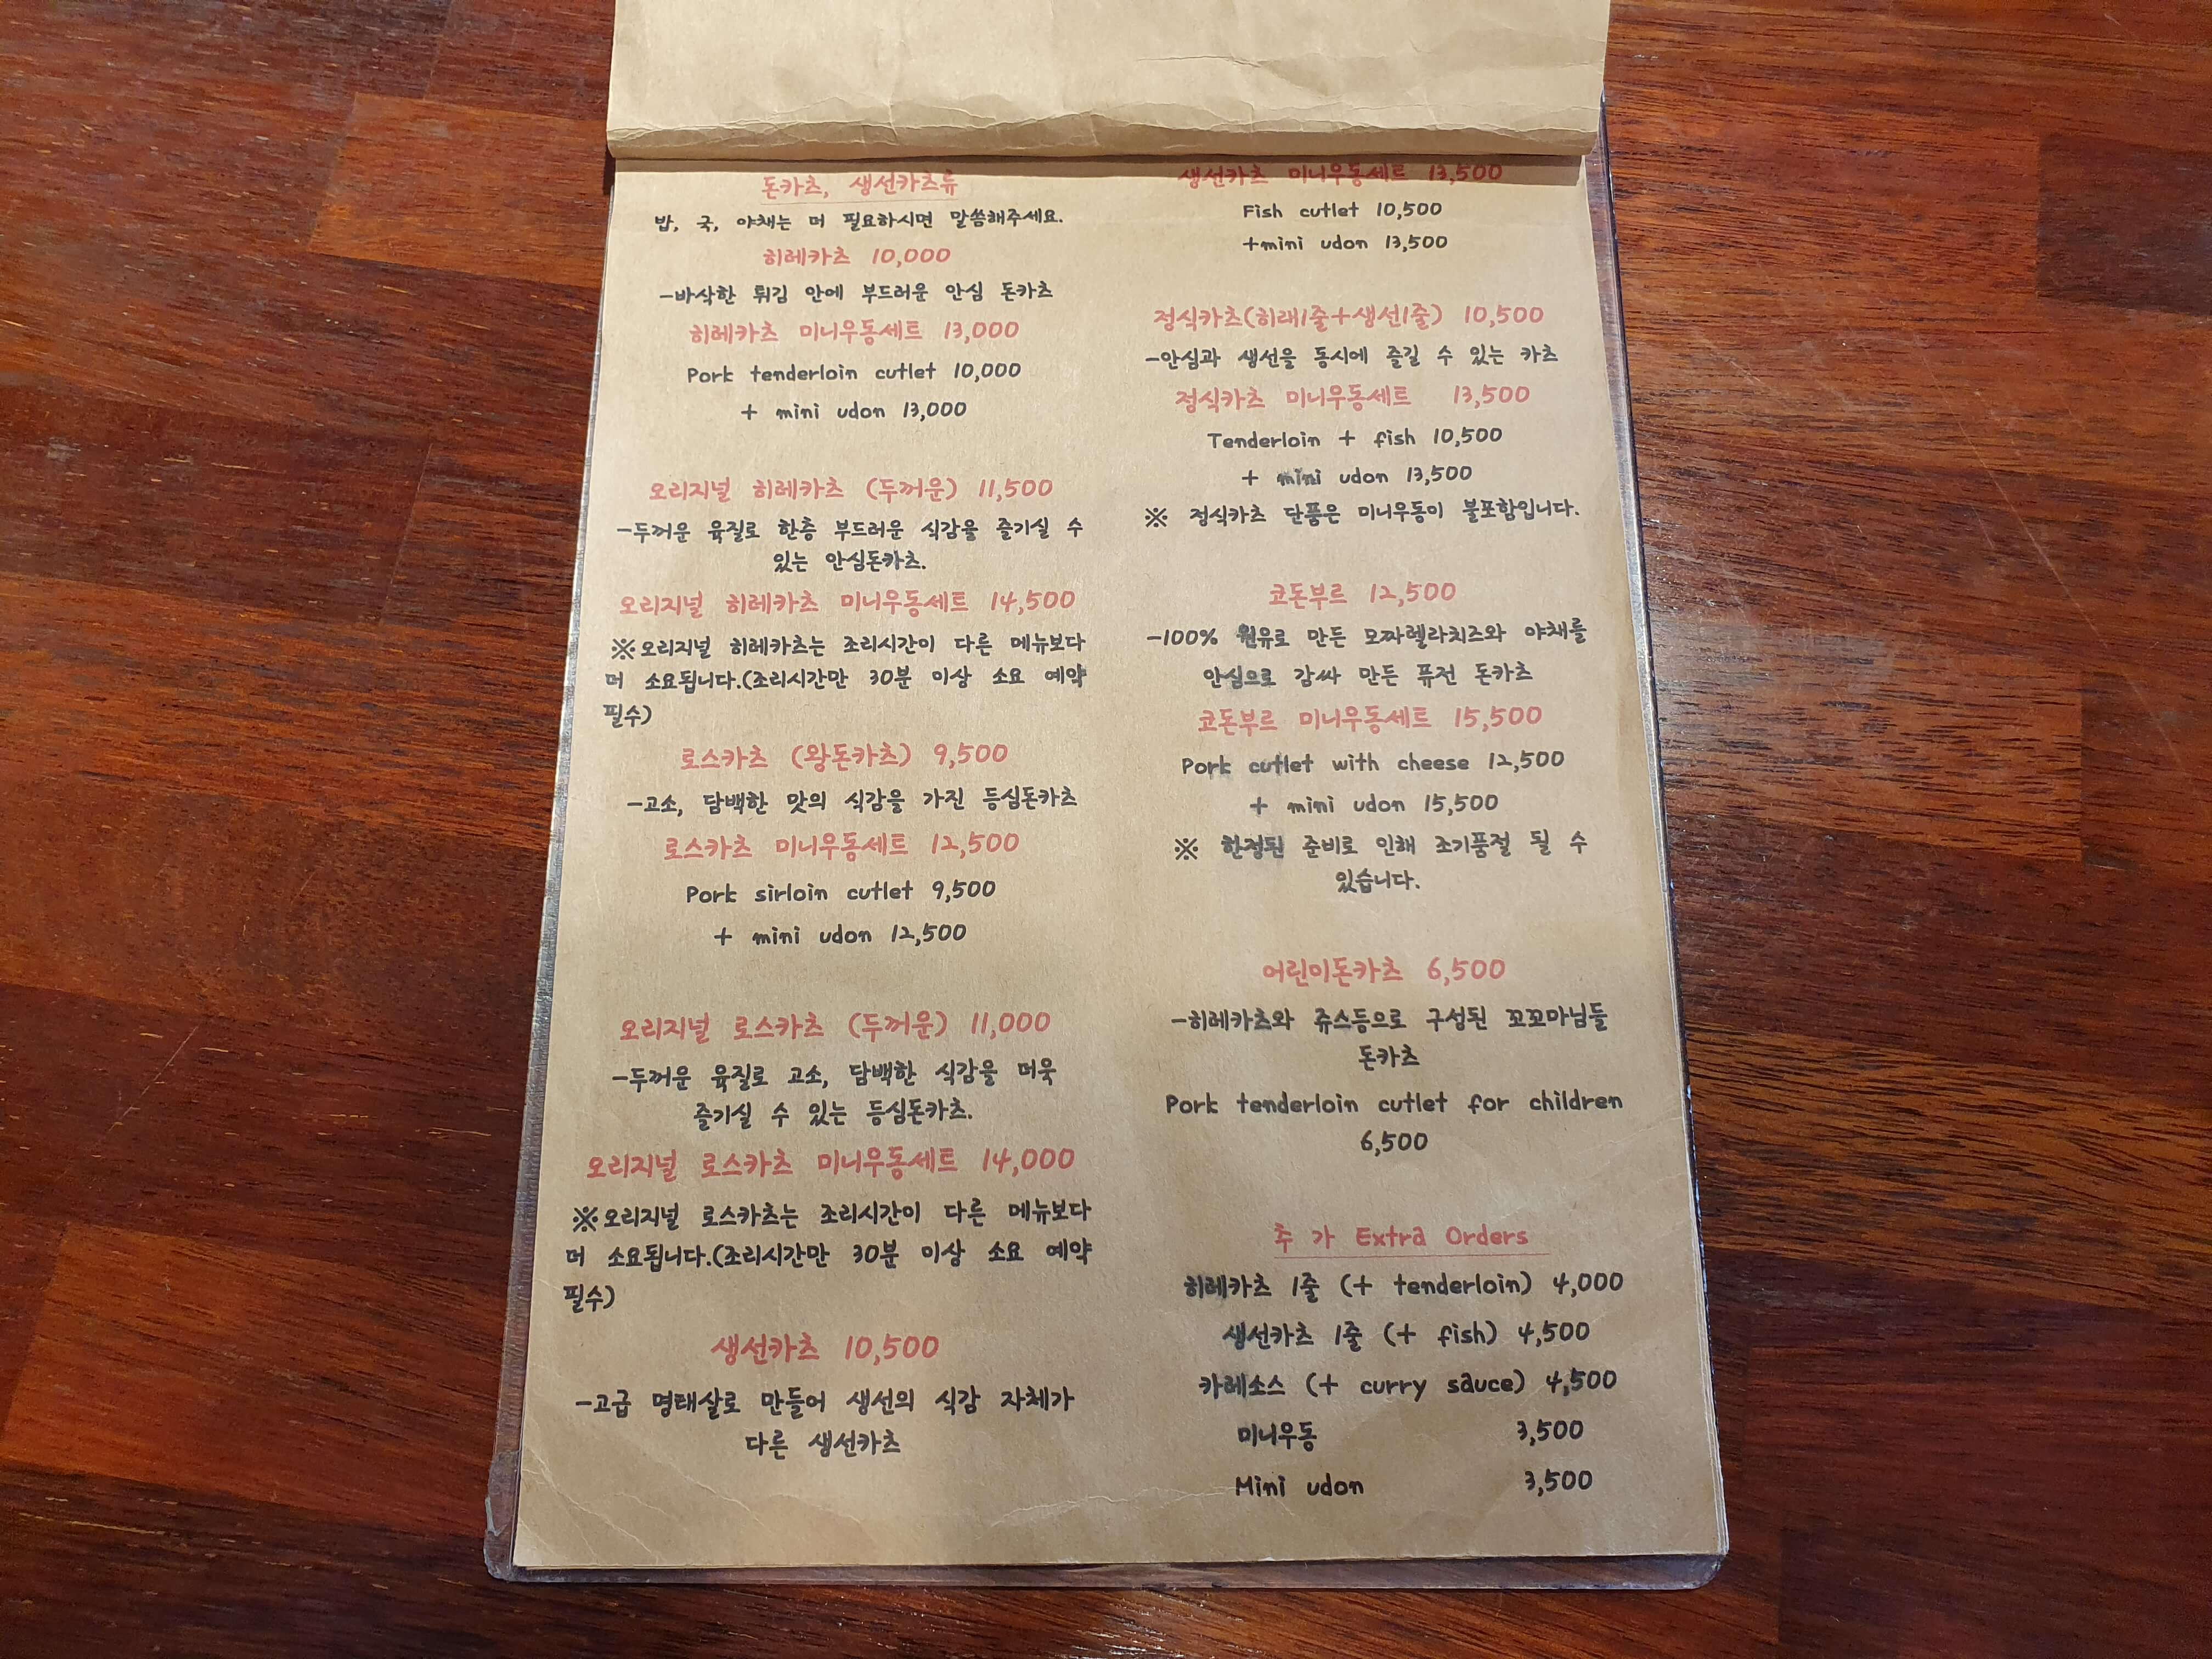 돈카츠, 생선카츠류
밥, 국, 야채는 더 필요하시면 말씀해주세요.
히레카츠 10,000
-바삭한 튀김 안에 부드러운 안심 돈카츠
히레카츠 미니우동세트 13,000
Pork tenderloin cutlet 10,000
+ mini udon 13,000
오리지널 히레카츠 (두꺼운) 11,500
-두꺼운 육질로 한층 부드러운 식감을 즐기실 수
있는 안심돈카츠.
오리지널 히레카츠 미니우동세트 14,500
※오리지널 히레카츠는 조리시간이 다른 메뉴보다
더 소요됩니다.(조리시간만 30분 이상 소요 예약
필수)
로스카츠 (왕돈카츠) 9,500
-고소, 담백한 맛의 식감을 가진 등심돈카츠
로스카츠 미니우동세트 12,500
Pork sirloin cutlet 9,500
+ mini udon 12,500
오리지널 로스카츠 (두꺼운) 11,000
-두꺼운 육질로 고소, 담백한 식감을 더욱
즐기실 수 있는 등심돈카츠.
오리지널 로스카츠 미니우동세트 14,000
※오리지널 로스카츠는 조리시간이 다른 메뉴보다
더 소요됩니다.(조리시간만 30분 이상 소요 예약
필수)
생선카츠 10,500
-고급 명태살로 만들어 생선의 식감 자체가
다른 생선카츠
생선카츠 미니우동세트 13,500
Fish cutlet 10,500
+mini udon 13,500
정식카츠(히래1줄+생선1줄) 10,500
-안심과 생선을 동시에 즐길 수 있는 카츠
정식카츠 미니우동세트 13,500
Tenderloin + fish 10,500
+ mini udon 13,500
※ 정식카츠 단품은 미니우동이 불포함입니다.
코돈부르 12,500
-100% 원유로 만든 모짜렐라치즈와 야채를
안심으로 감싸 만든 퓨전 돈카츠
코돈부르 미니우동세트 15,500
Pork cutlet with cheese 12,500
+ mini udon 15,500
※ 한정된 준비로 인해 조기품절 될 수
있습니다.
어린이돈카츠 6,500
-히레카츠와 쥬스등으로 구성된 꼬꼬마님들
돈카츠
Pork tenderloin cutlet for children
6,500
추 가 Extra Orders
히레카츠 1줄 (+ tenderloin) 4,000
생선카츠 1줄 (+ fish) 4,500
카레소스 (+ curry sauce) 4,500
미니우동 3,500
Mini udon 3,500